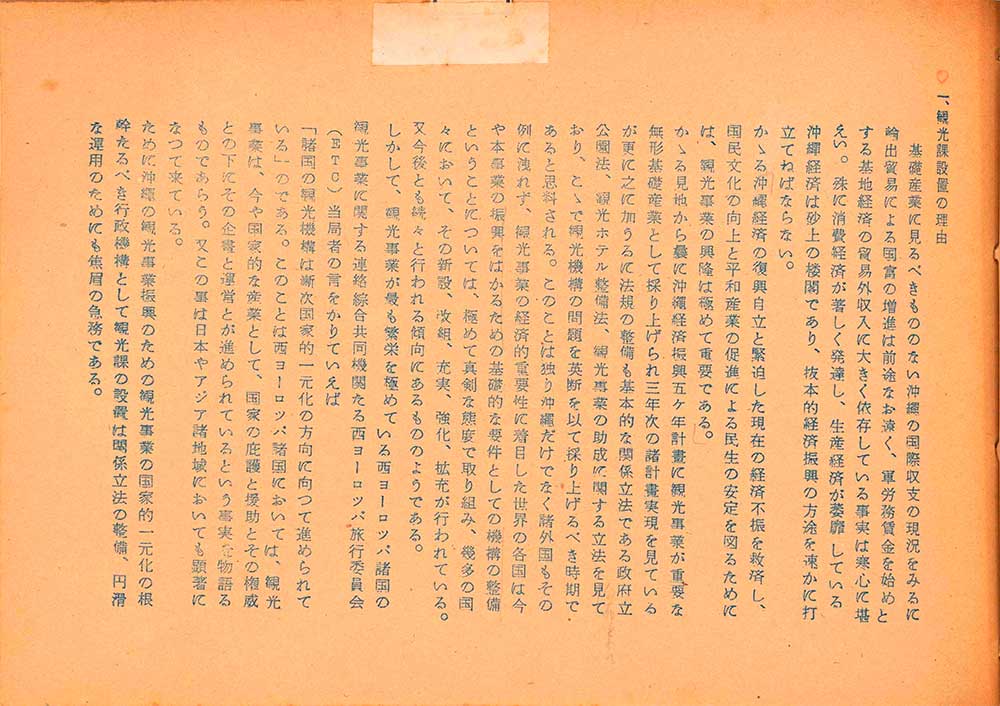 一、観光課設置の理由
基礎産業に見るべきもののない沖縄の国際収支の現況をみるに
輸出貿易による国富の増進は前途なお遠く、軍労務賃金を始めと
する基地経済の貿易外収入に大きく依存している事実は寒心に堪
えい。殊に消費経済が著しく発達し、生産経済が萎靡している
沖縄経済は砂上の楼閣であり、抜本的経済振興の方途を速かに打
立てねばならない。
かゝる沖縄経済の復興自立と緊迫した現在の経済不振を救済し、
国民文化の向上と平和産業の促進による民生の安定を図るために
は、観光事業の興隆は極めて重要である。
かゝる見地から曩に沖縄経済振興五ケ年計畫に観光事業が重要な
無形基礎産業として採り上げられ三年次の諸計畫実現を見ている
が更に之に加うるに法規の整備も基本的な関係立法である政府立
公園法、観光ホテル整備法、観光事業の助成に関する立法を見て
おり、こゝで観光機構の問題を英断を以て採り上げるべき時期で
あると思料される。このことは独り沖縄だけでなく諸外国もその
例に洩れず、観光事業の経済的重要性に着目した世界の各国は今
や本事業の振興をはかるための基礎的な要件としての機構の整備
ということについては、極めて真剣な態度で取り組み、幾多の国
々において、その新設、改組、充実、強化、拡充が行われている。
又今後とも続々と行われる傾向にあるもののようである。
しかして、観光事業が最も繁栄を極めている西ヨーロッパ諸国の
観光事業に関する連絡綜合共同機関たる西ヨーロッパ旅行委員会
(ETC)当局者の言をかりていえば
「諸国の観光機構は漸次国家的一元化の方向に向つて進められて
いる」のである。このことは西ヨーロッパ諸国においては、観光
事業は、今や国家的な産業として、国家の庇護と援助とその権威
との下にその企畫と運営とが進められているという事実を物語る
ものであらう。又この事は日本やアジア諸地域においても顕著に
なつて来ている。
ために沖縄の観光事業振興のための観光事業の国家的一元化の根
幹たるべき行政機構として観光課の設置は関係立法の整備、円滑
な運用のためにも焦眉の急務である。